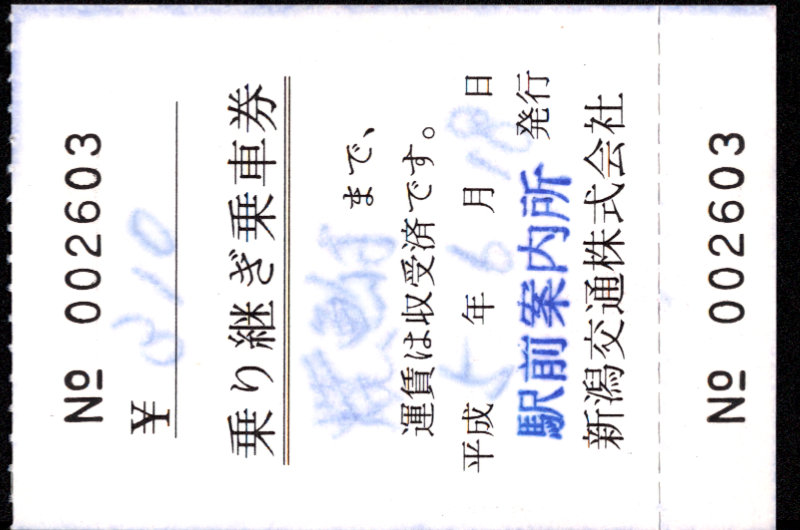 № 002603
¥ 310
乗り継ぎ乗車券
まで、
運賃は収受済です。
平成 5 年 6 月 18 日
駅前案内所 発行
新潟交通株式会社
№ 002603